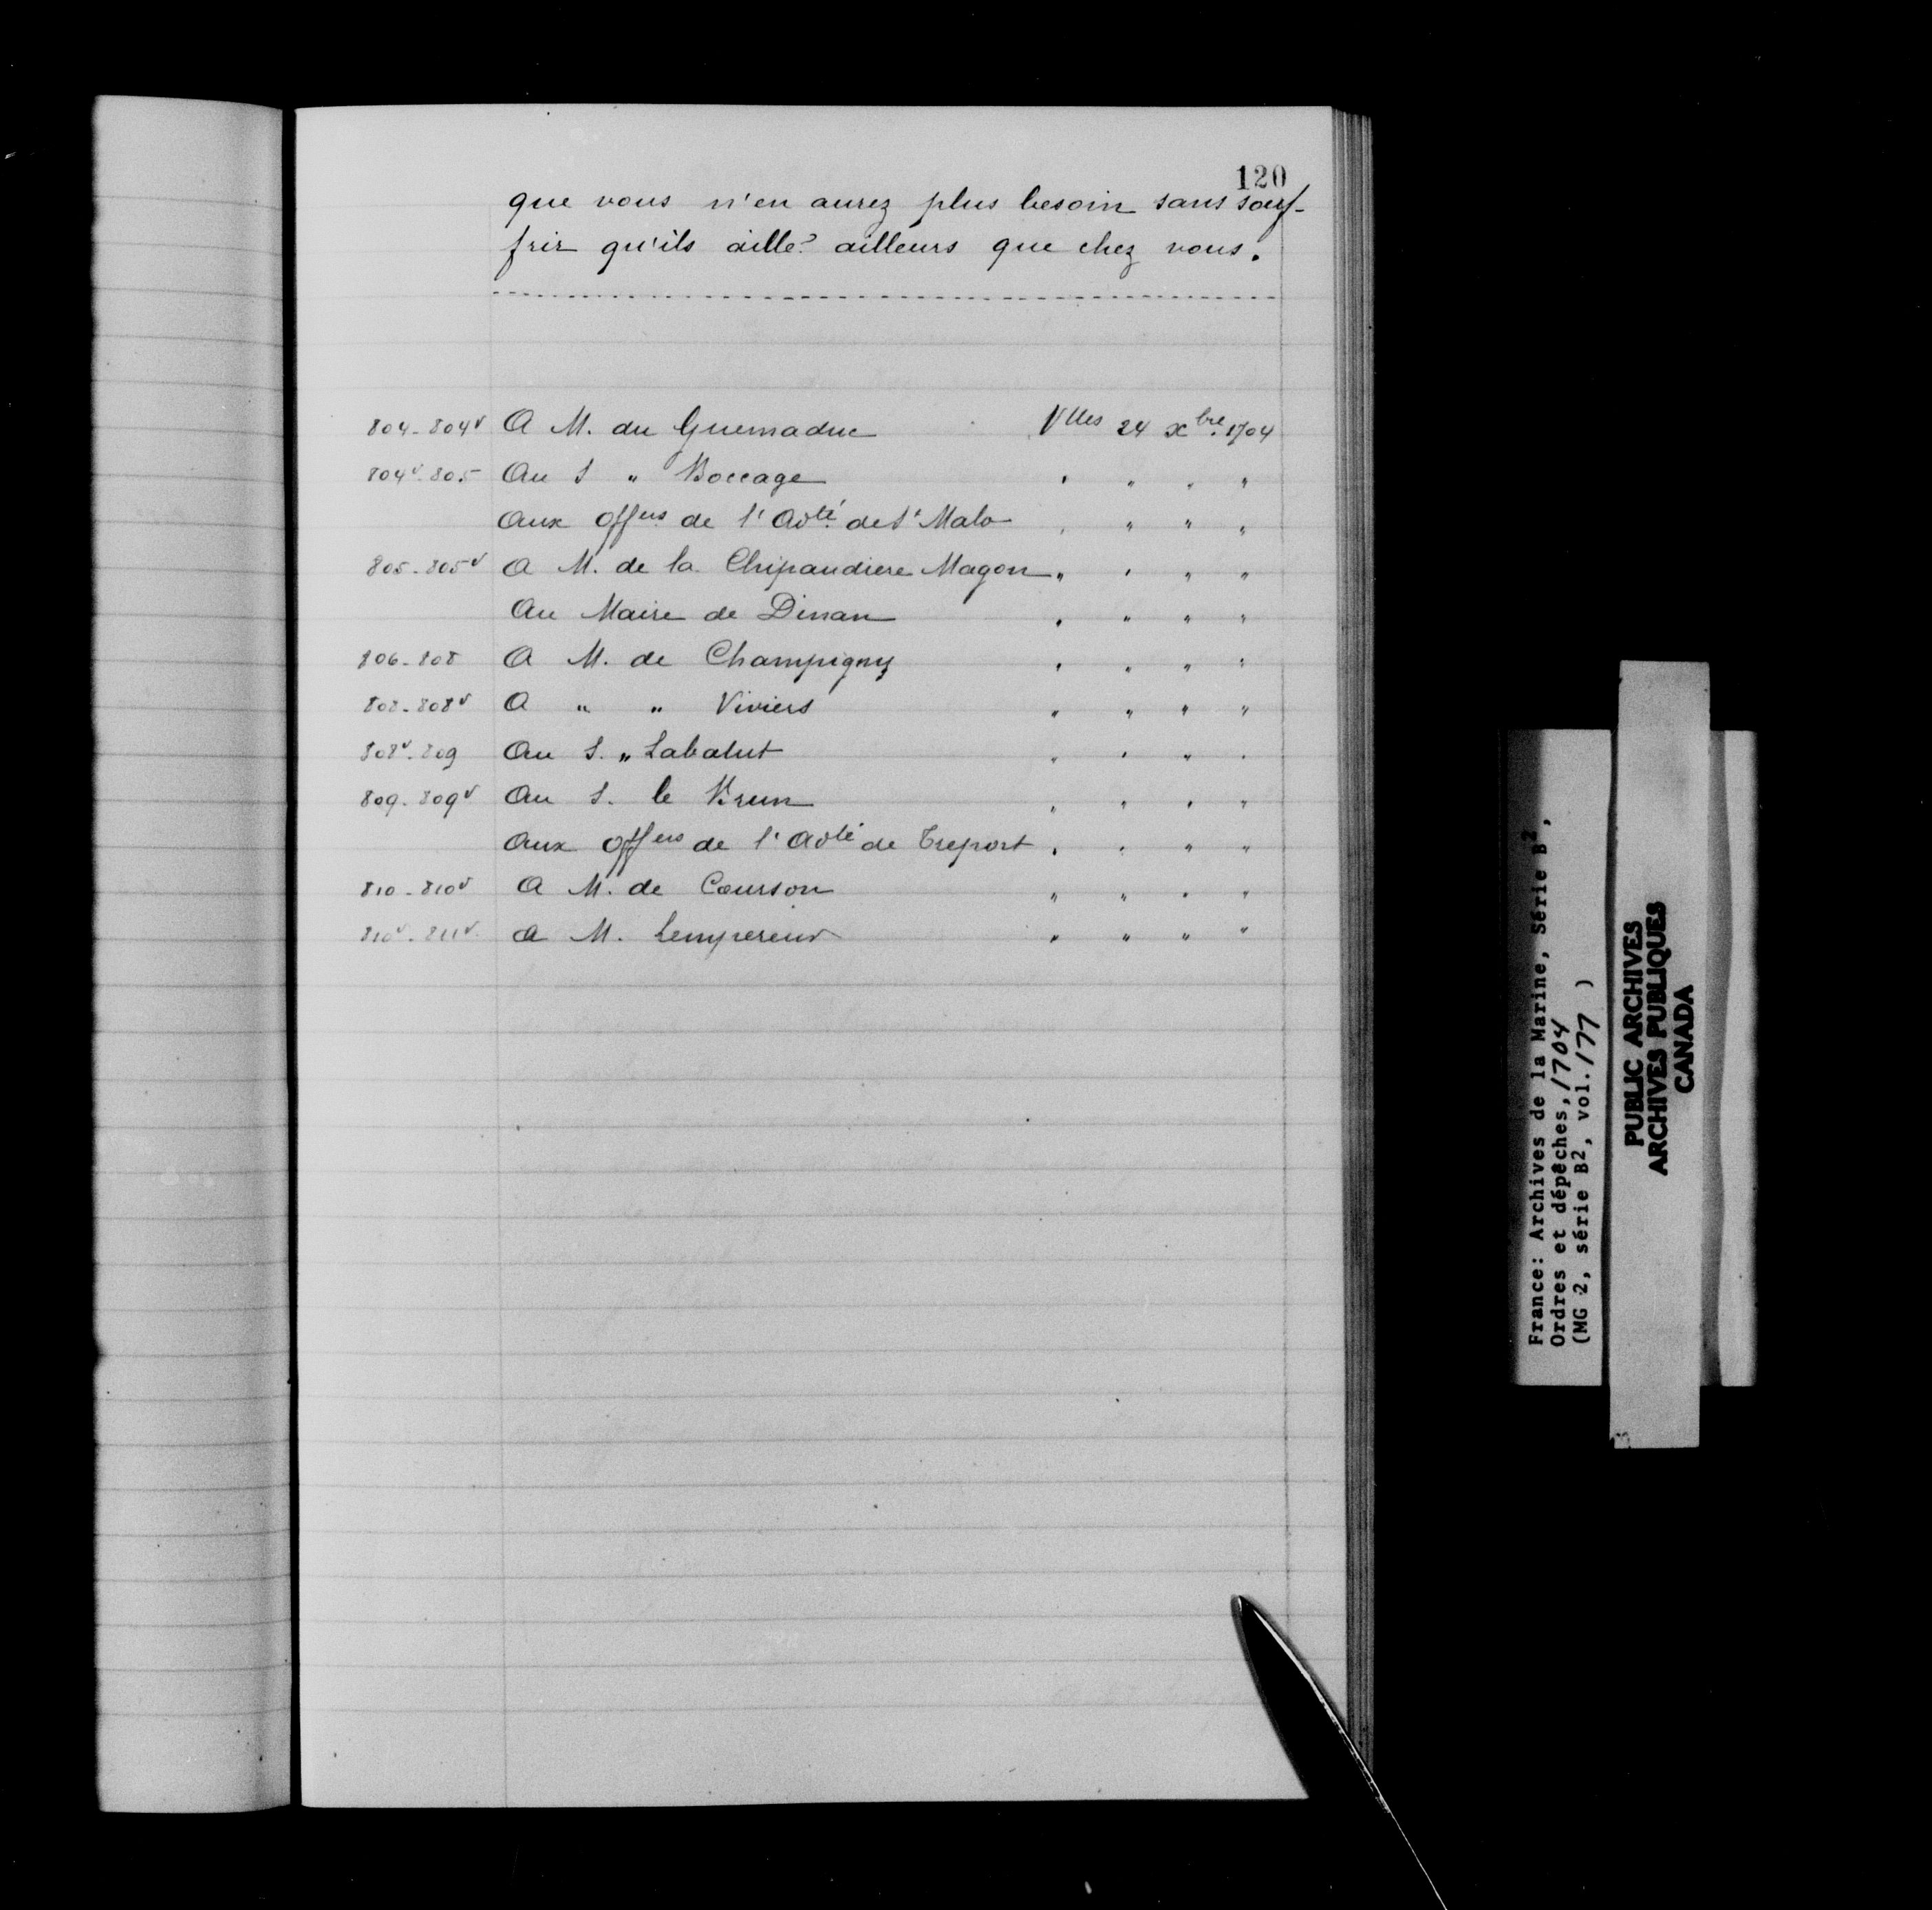 120
que vous n'en aurez plus besoin sans souf-
frir qu'ils aille? ailleurs que chez vous.
804-804v A M. du Guemaduc Vlles 24 xbre 1704
804v-805 Au S " Boccage " " " "
Aux offers de l'Adté de St Malo " " " "
805-805v A M. de la Chipaudiere Magon " " " "
Au Maire de Dinan " " " "
806-808 A M. de Champigny " " " "
808-808v A " " Viviers " " " "
808v-809 Au S. " Labatut " " " "
809-809v Au S. le Brun " " " "
Aux offers de l'Adté de Treport " " " "
810-810v A M. de Courson " " " "
810v-811v A M. Lempereur " " " "
France: Archives de la Marine, Série B2,
Ordres et dépêches, 1704
(MG 2, série B2, vol. 177 )
PUBLIC ARCHIVES
ARCHIVES PUBLIQUES
CANADA